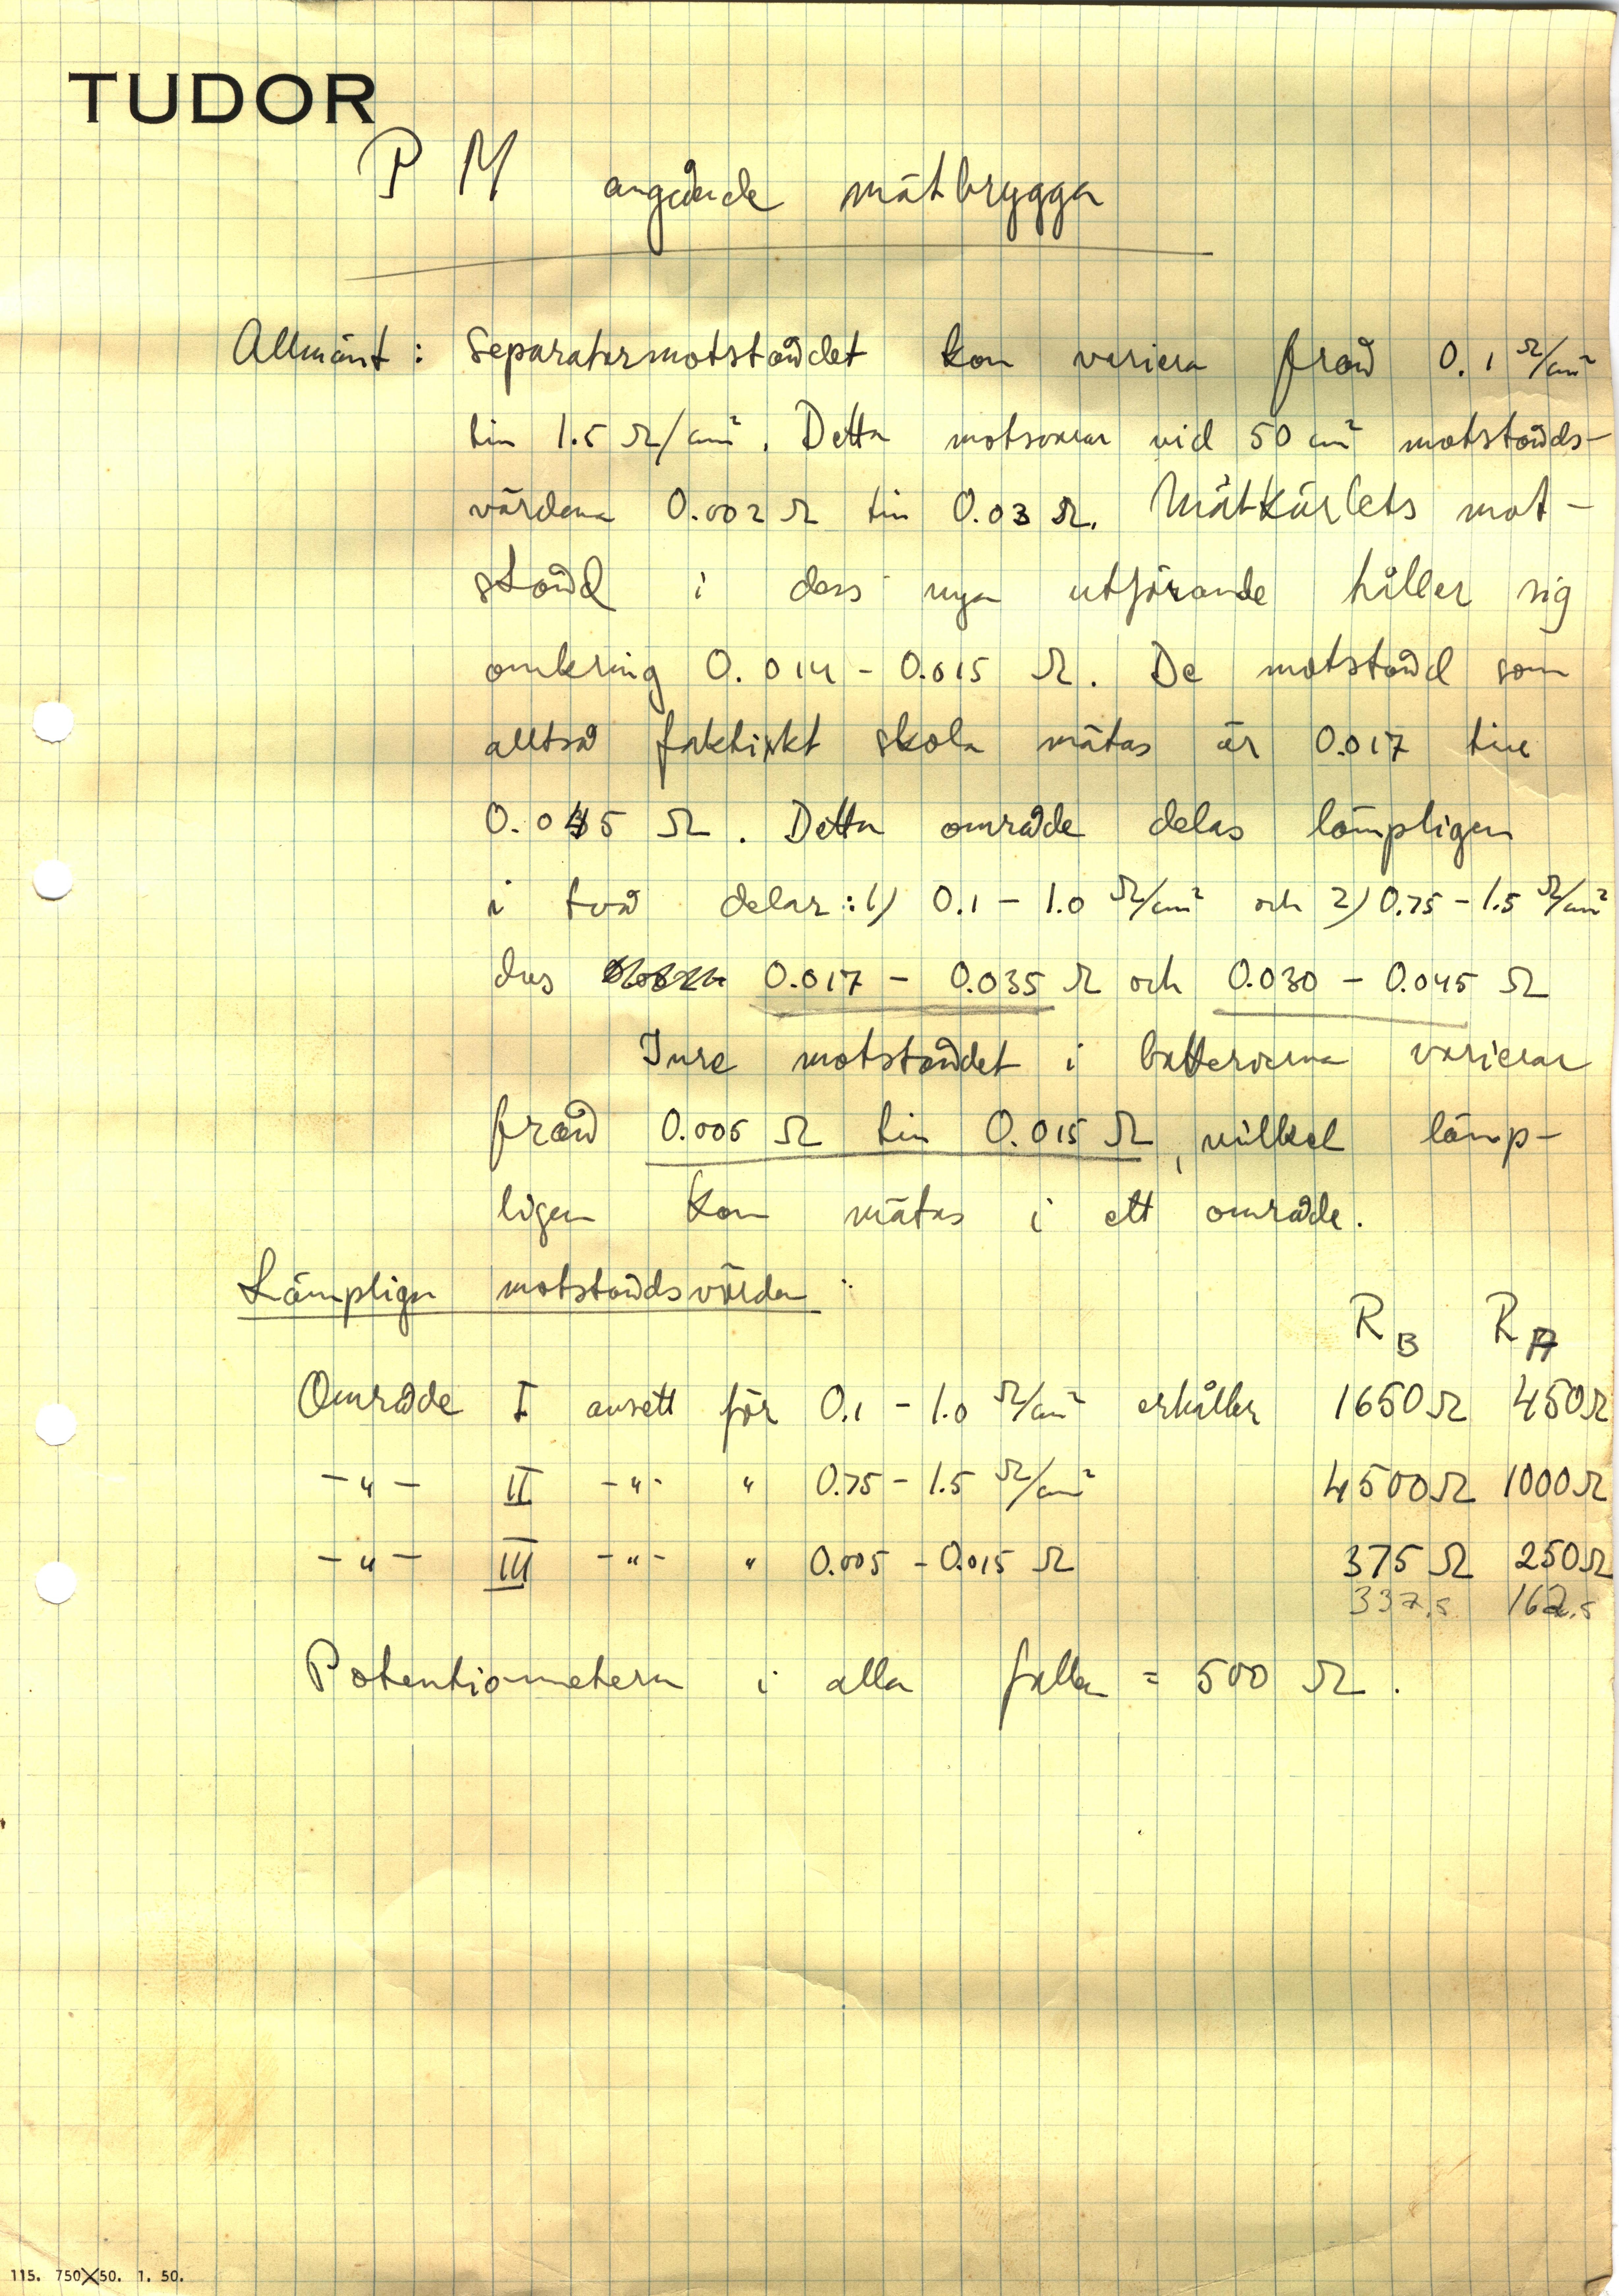 TUDOR
P M angående mätbrygga
Allmänt: Separatormotståndet kan variera från 0.1 Ω/cm²
till 1.5 Ω/cm². Detta motsvarar vid 50 cm² motstånds-
värdena 0.002 Ω till 0.03 Ω. Mätkärlets mot-
stånd i dess nya utförande håller sig
omkring 0.014 - 0.015 Ω. De motstånd som
alltså faktiskt skola mätas är 0.017 till
0.045 Ω. Detta område delas lämpligen
i två delar: 1) 0.1 - 1.0 Ω/cm² och 2) 0.75 - 1.5 Ω/cm²
dvs 0.017 - 0.035 Ω och 0.030 - 0.045 Ω
Inre motståndet i batterierna varierar
från 0.005 Ω till 0.015 Ω, vilket lämp-
ligen kan mätas i ett område.
Lämpliga motståndsvärden:
R_B R_A
Område I avsett för 0.1 - 1.0 Ω/cm² erhåller 1650 Ω 450 Ω
-"- II -"- " 0.75 - 1.5 Ω/cm² 4500 Ω 1000 Ω
-"- III -"- " 0.005 - 0.015 Ω 375 Ω 250 Ω
337,5 162,5
Potentiometern i alla fallen = 500 Ω.
115. 750X50. 1. 50.